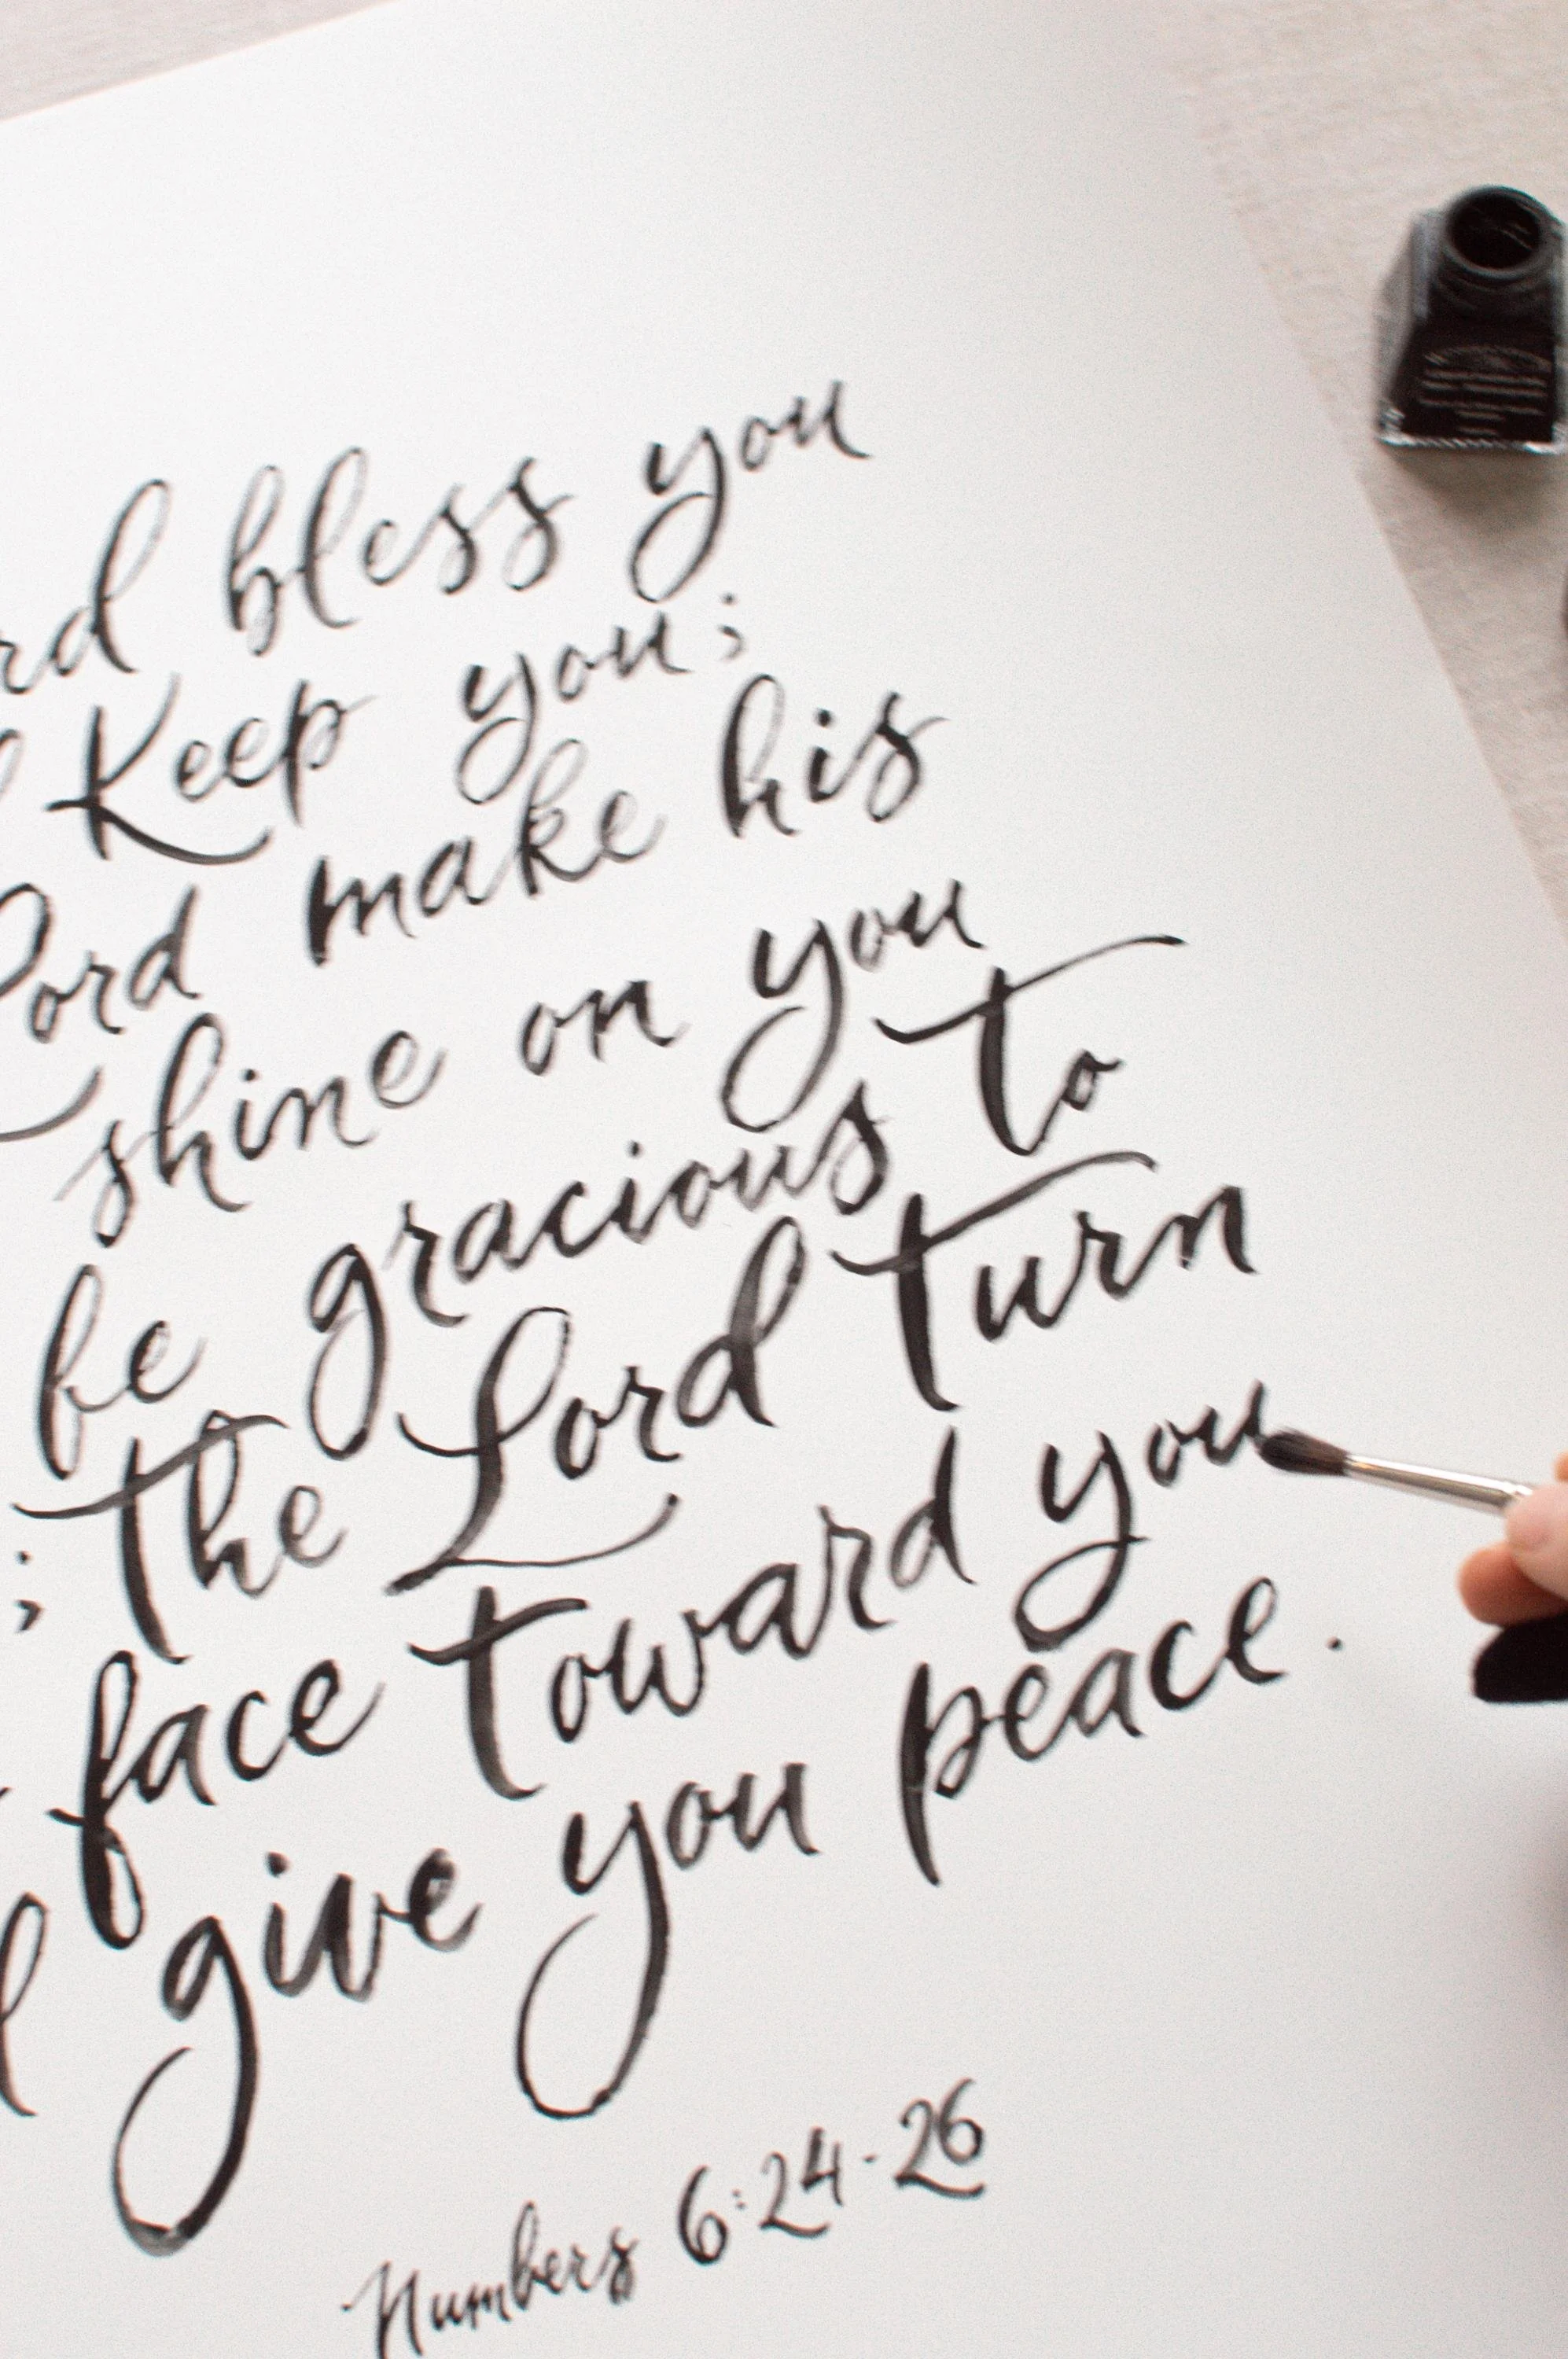 rd bless you
Keep you;
Lord make his
shine on you
be gracious to
; the Lord turn
face toward you
give you peace.
Numbers 6:24-26